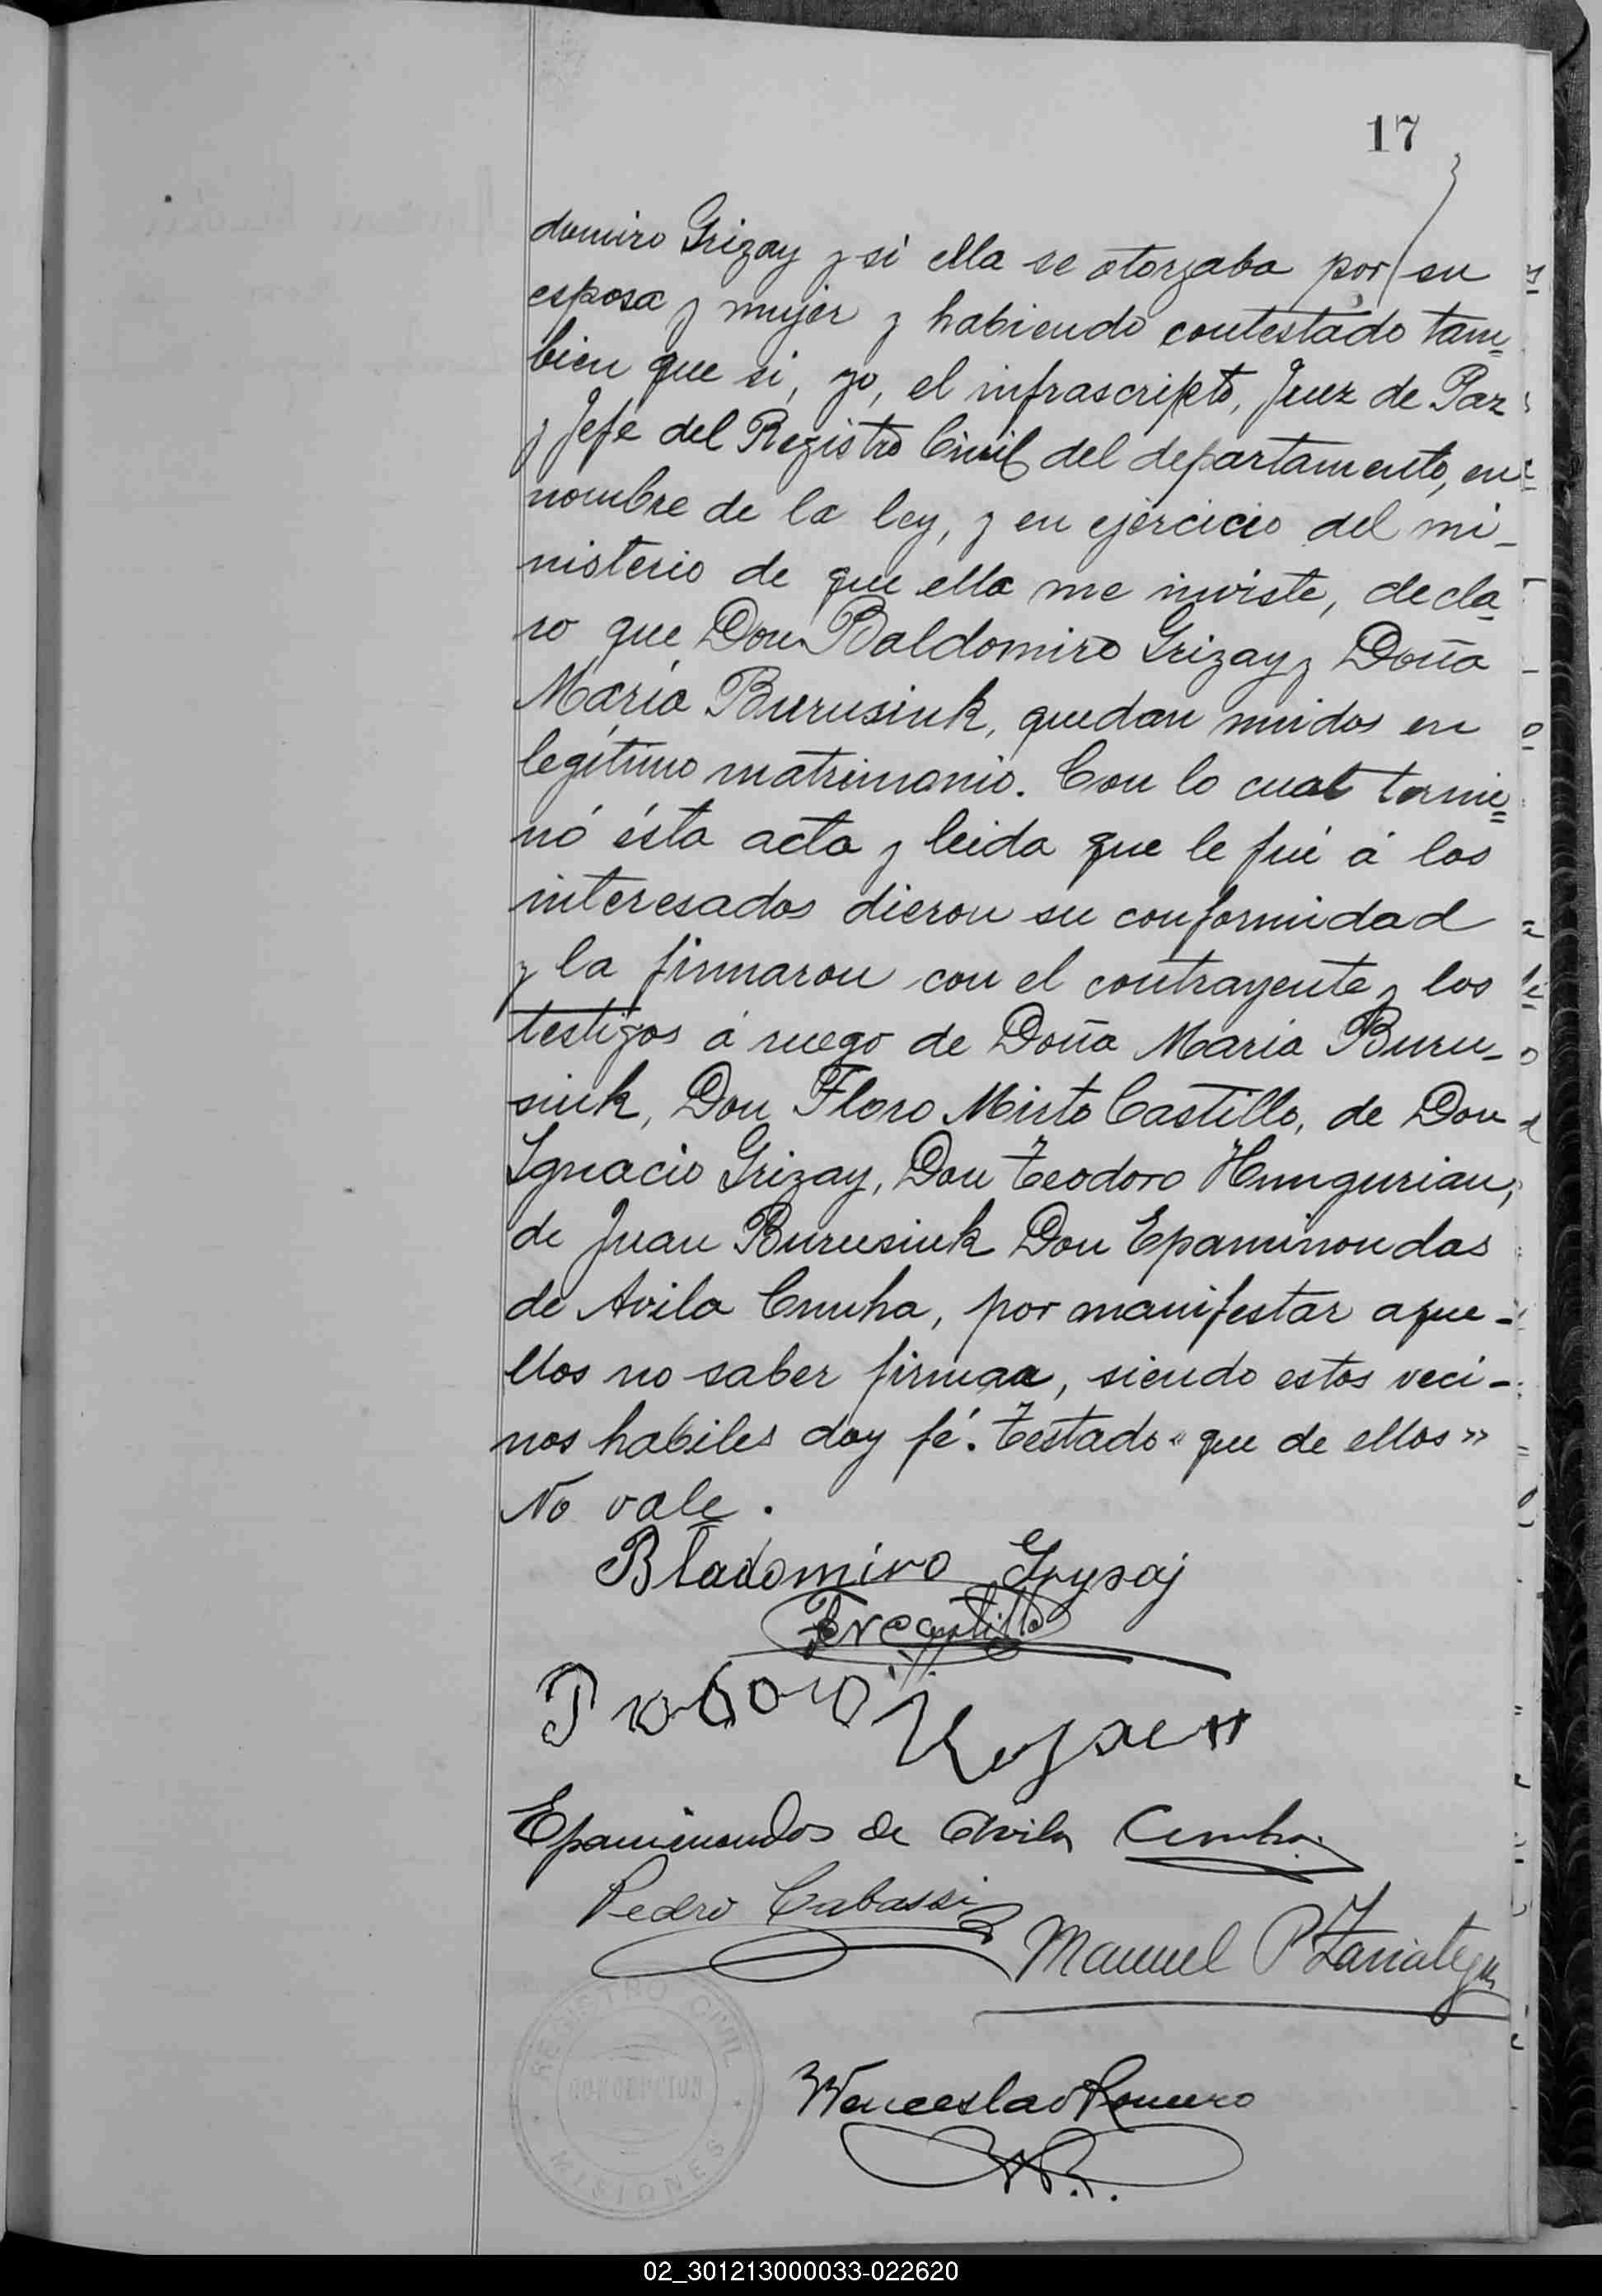 17
domiro Grizay y si ella se otorgaba por su
esposa y mujer y habiendo contestado tam=
bien que si, yo, el infrascripto, Juez de Paz
y Jefe del Registro Civil del departamento, en
nombre de la ley, y en ejercicio del mi-
nisterio de que ella me inviste, decla=
ro que Don Baldomiro Grizay y Doña
María Burusiuk, quedan unidos en
legítimo matrimonio. Con lo cual termi=
nó ésta acta y leida que le fué á los
interesados dieron su conformidad
y la firmaron con el contrayente y los
testigos á ruego de Doña Maria Buru-
siuk, Don Floro Mirto Castillo, de Don
Ignacio Grizay, Don Teodoro Hungurian,
de Juan Burusiuk Don Epaminondas
de Avila Cunha, por manifestar aque-
llos no saber firmar, siendo estos veci-
nos habiles doy fé. Testado « que de ellos »
No vale.
Bladomiro Grysaj
Castillo
Epaminondas de Avila Cunha
Pedro Cabassi
Manuel P Zariategui
Wenceslao Romero
W.R.
REGISTRO CIVIL
CONCEPCION
MISIONES
02_301213000033-022620